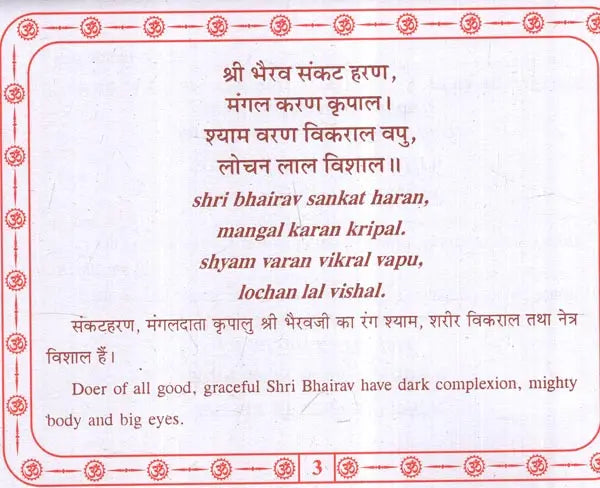 श्री भैरव संकट हरण,
मंगल करण कृपाल।
श्याम वरण विकराल वपु,
लोचन लाल विशाल॥
shri bhairav sankat haran,
mangal karan kripal.
shyam varan vikral vapu,
lochan lal vishal.
संकटहरण, मंगलदाता कृपालु श्री भैरवजी का रंग श्याम, शरीर विकराल तथा नेत्र
विशाल हैं।
Doer of all good, graceful Shri Bhairav have dark complexion, mighty
body and big eyes.
3